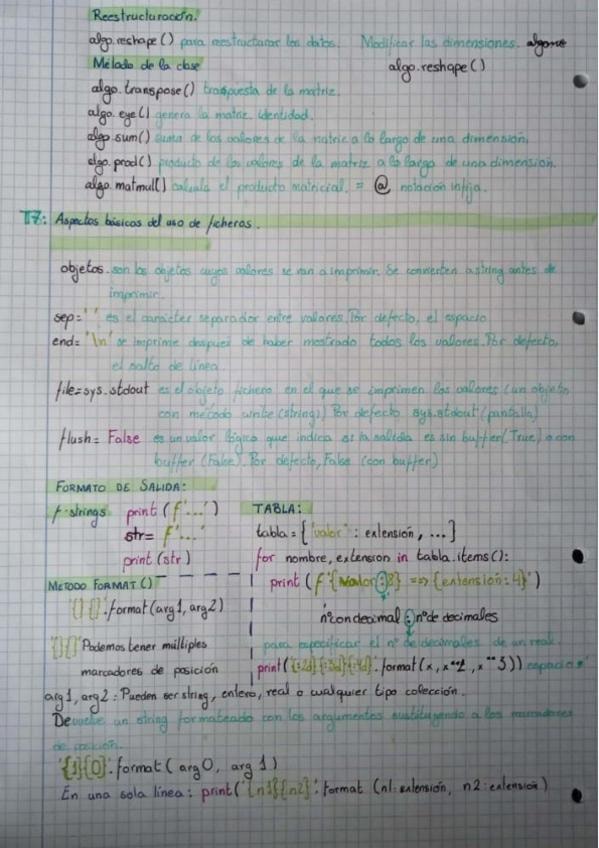 Reestructuración.
algo.reshape() para reestructurar los datos. Modificar las dimensiones.
Método de la clase algo.reshape()
algo.transpose() traspuesta de la matriz.
algo.eye() genera la matriz identidad.
algo.sum() suma de los valores de la matriz a lo largo de una dimensión.
algo.prod() producto de los valores de la matriz a lo largo de una dimensión.
algo.matmul() calcula el producto matricial. = @ notación infija.
T7: Aspectos básicos del uso de ficheros.
objetos. son los objetos cuyos valores se van a imprimir. Se convierten a string antes de
imprimir.
sep=' ' es el carácter separador entre valores. Por defecto, el espacio
end= '\n' se imprime después de haber mostrado todos los valores. Por defecto,
el salto de línea.
file=sys.stdout es el objeto fichero en el que se imprimen los valores (un objeto
con método write(string)) Por defecto sys.stdout (pantalla)
flush= False es un valor lógico que indica si la salida es sin buffer (True) o con
buffer (False). Por defecto, False (con buffer)
FORMATO DE SALIDA:
f-strings print(f'...')
str= f'...'
print(str)
TABLA:
tabla = {'valor' : extensión, ...}
for nombre, extension in tabla.items():
print(f'{valor:8} => {extensión:4}')
nº con decimal : nº de decimales
para especificar el nº de decimales de un real.
print('{:2d} {:3d} {:4d}'.format(x, x**2, x**3)) espacios
METODO FORMAT()
'{} {}'.format(arg1, arg2)
'{} {}' Podemos tener múltiples
marcadores de posición
arg1, arg2: Pueden ser string, entero, real o cualquier tipo colección.
Devuelve un string formateado con los argumentos sustituyendo a los marcadores
de posición.
'{1}{0}'.format(arg0, arg1)
En una sola línea: print('{n1}{n2}'.format(n1:extensión, n2:extensión)